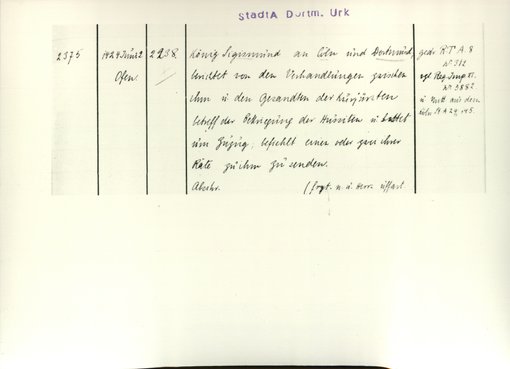 StadtA Dortm. Urk
2375
1424 Juni 2
Ofen.
2238.
König Sigismund an Cöln und Dortmund,
berichtet von den Verhandlungen zwischen
ihm u den Gesandten der Kurfürsten
betreff der Bekriegung der Hussiten u bittet
um Zuzug, befiehlt einen oder zwei ihrer
Räte zu ihm zu senden.
Abschr.
gedr R T A. 8
No 312
vgl Reg. Imp XI.
No 5882